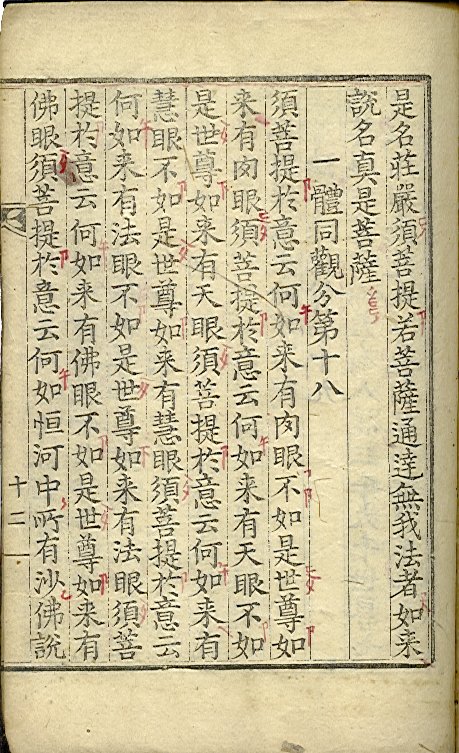 是名莊嚴須菩提若菩薩通達無我法者如来
說名真是菩薩
一體同觀分第十八
須菩提於意云何如来有肉眼不如是世尊如
来有肉眼須菩提於意云何如来有天眼不如
是世尊如来有天眼須菩提於意云何如来有
慧眼不如是世尊如来有慧眼須菩提於意云
何如来有法眼不如是世尊如来有法眼須菩
提於意云何如来有佛眼不如是世尊如来有
佛眼須菩提於意云何如恒河中所有沙佛說
十二